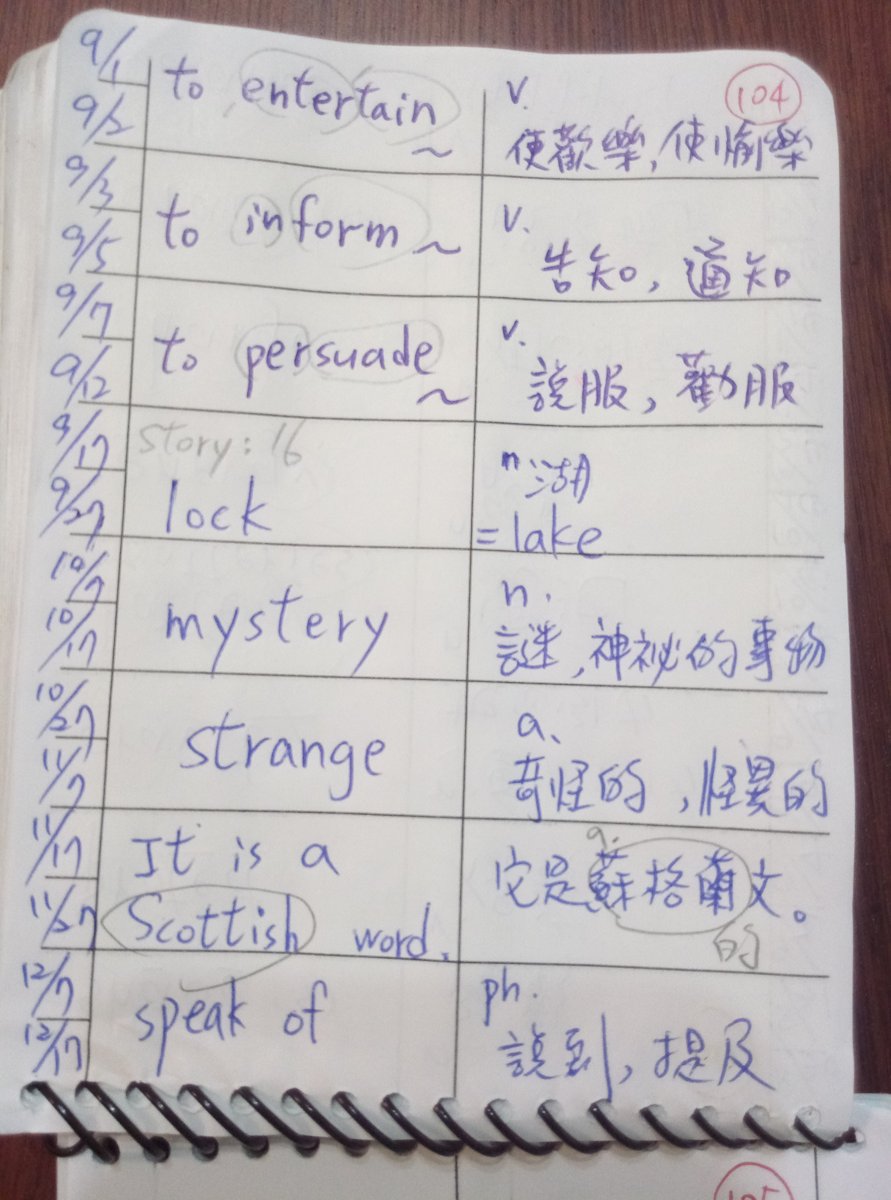 9/1
to entertain ~
v.
104
9/2
使歡樂,使愉樂
9/3
to inform ~
v.
9/5
告知,通知
9/7
to persuade ~
v.
9/12
說服,勸服
9/17
story: 16
n 湖
9/27
lock
= lake
10/7
mystery
n.
10/17
謎,神祕的事物
10/27
strange
a、
11/7
奇怪的,怪異的
11/17
It is a
a.
它是蘇格蘭文。
11/27
Scottish word.
的
12/7
speak of
ph.
12/17
說到,提及
105